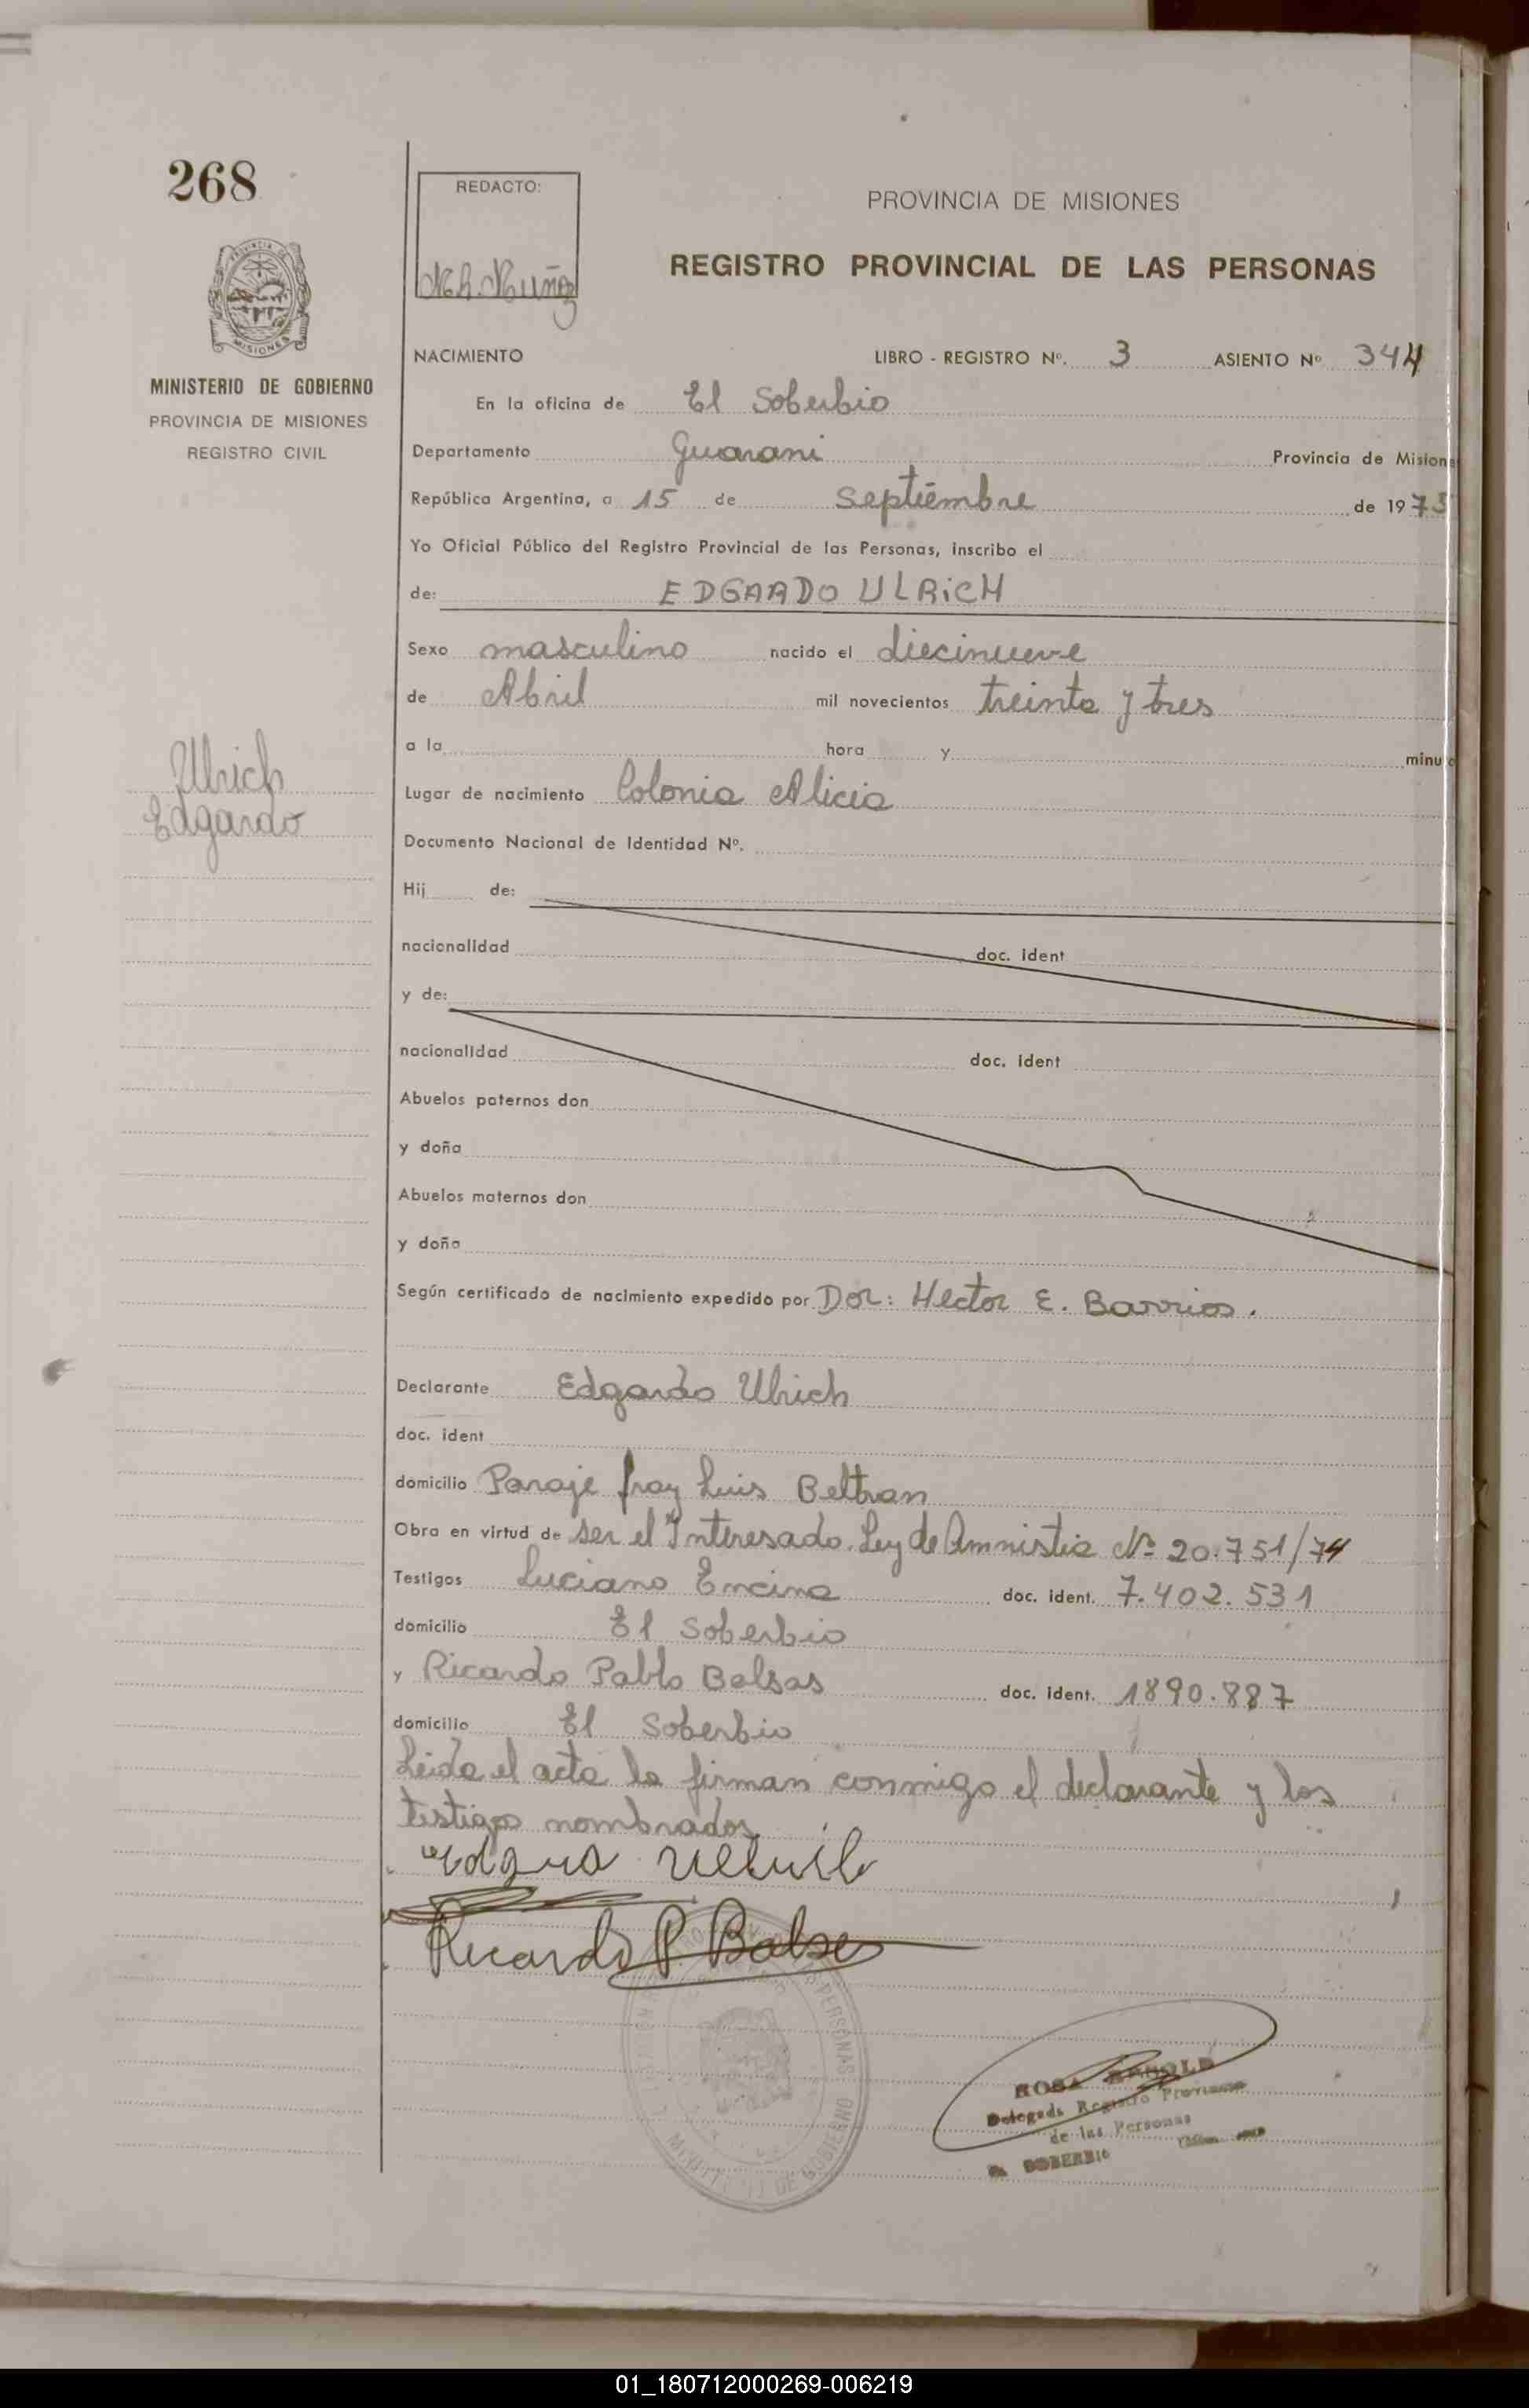 268
REDACTO:
Muñoz
PROVINCIA DE MISIONES
REGISTRO PROVINCIAL DE LAS PERSONAS
MISIONES
MINISTERIO DE GOBIERNO
PROVINCIA DE MISIONES
REGISTRO CIVIL
NACIMIENTO LIBRO - REGISTRO Nº. 3 ASIENTO Nº 344
En la oficina de El Soberbio
Departamento Guarani Provincia de Mision
República Argentina, a 15 de Septiembre de 197
Yo Oficial Público del Registro Provincial de las Personas, inscribo el
de: EDGARDO ULRICH
Sexo masculino nacido el diecinueve
de Abril mil novecientos treinta y tres
a la hora y minu
Ulrich
Edgardo
Lugar de nacimiento Colonia Alicia
Documento Nacional de Identidad Nº.
Hij de:
nacionalidad doc. ident
y de:
nacionalidad doc. ident
Abuelos paternos don
y doña
Abuelos maternos don
y doña
Según certificado de nacimiento expedido por Dor: Hector E. Barrios.
Declarante Edgardo Ulrich
doc. ident
domicilio Paraje fray Luis Beltran
Obra en virtud de ser el Interesado. Ley de Amnistia Nº 20.751/74
Testigos Luciano Encina doc. ident. 7.402.531
domicilio El Soberbio
y Ricardo Pablo Balsas doc. ident. 1890.887
domicilio El Soberbio
Leida el acta la firman conmigo el declarante y los
testigos nombrados
Ricardo P. Balsas
PERSONAS
DE GOBIERNO
ROSA
Delegada Registro Provincial
de las Personas
SOBERBIO
01_180712000269-006219